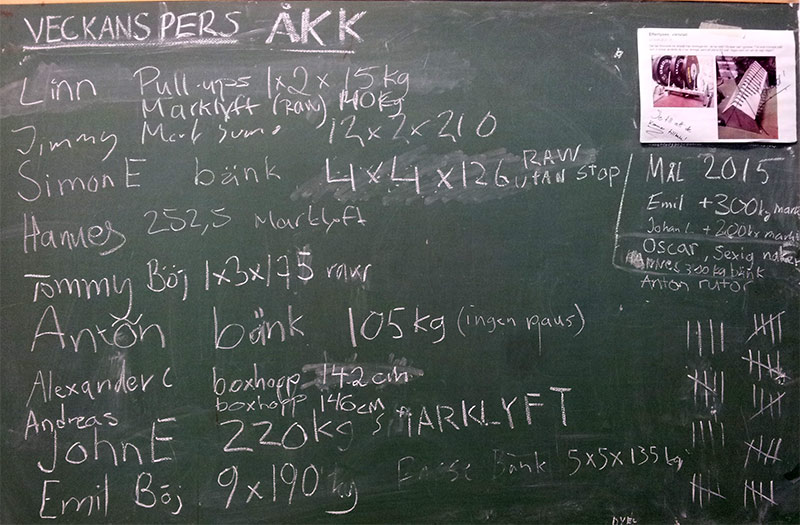 VECKANS PERS ÅKK
Linn Pull-ups 1x2x15kg
Marklyft (RAW) 140kg
Jimmy Mark sumo 12x2x210
Simon E bänk 4x4x126 RAW UTAN STOP
Hannes 252,5 Marklyft
Tommy Böj 1x3x175 raw
Anton bänk 105kg (ingen paus)
Alexander C boxhopp 142cm
Andreas boxhopp 146cm
John E 220kg MARKLYFT
Emil Böj 9x190kg
Bänk 5x5x135kg
MÅL 2015
Emil +300kg mark
Johan L. +200kg mark
Oscar, Sexig
Hannes 300kg bänk
Anton rutor